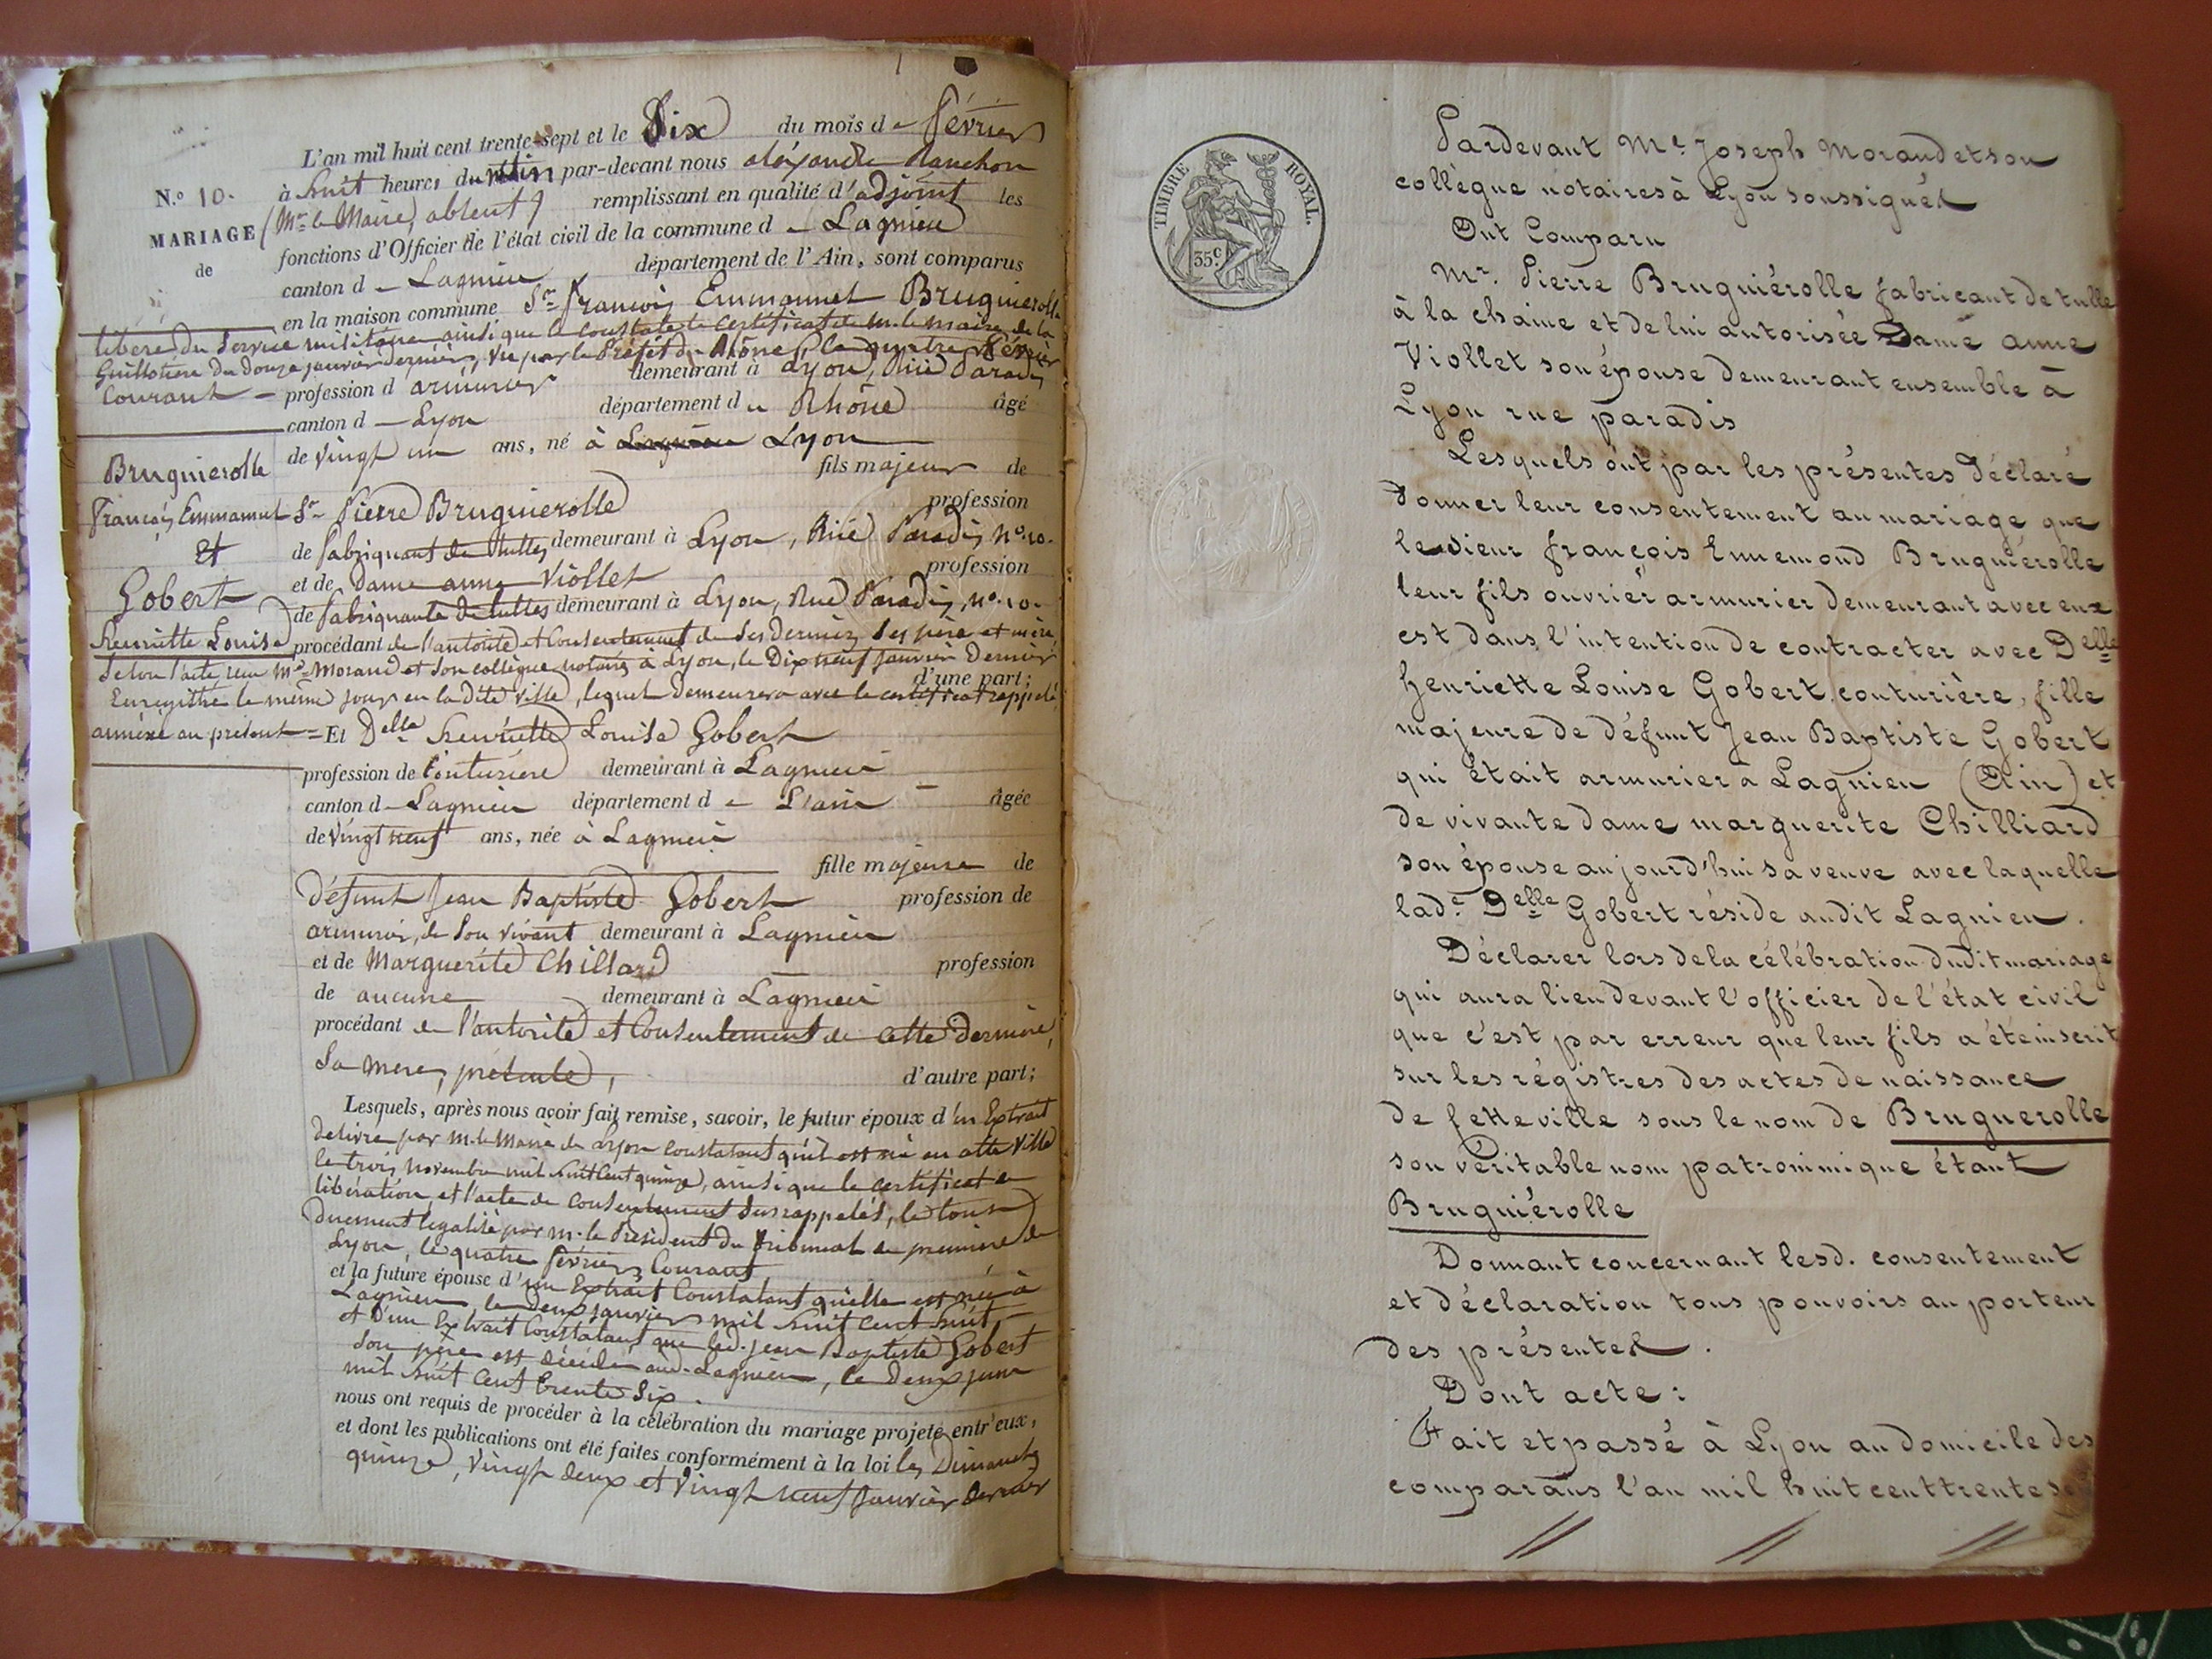 L'an mil huit cent trente-sept et le Six du mois de février
N.º 10. à huit heures du matin par-devant nous aléxandre
MARIAGE (Mr. le Maire, absent) remplissant en qualité d'adjoint les
de fonctions d'Officier de l'état civil de la commune de Lagnieu
canton de Lagnieu département de l'Ain, sont comparus
en la maison commune Sr. françois Emmanuel Bruguierolle
libéré du Service militaire ainsi que le constate le certificat de m. le maire de la
Guillotière du Douze janvier dernier, vu par le Préfet du Rhône, le quatre février
Courant - profession d armurier demeurant à Lyon, Rue Paradis
canton de Lyon département du Rhône âgé
de vingt un ans, né à Lagnieu Lyon
Bruguierolle fils majeur de
françois Emmanuel Sr. Pierre Bruguierolle profession
et de fabriquant de tulles demeurant à Lyon, Rue Paradis, No. 10.
Gobert et de Dame anne Viollet profession
de fabriquante de tulles demeurant à Lyon, Rue Paradis, No. 10.
henriette Louise procédant de l'autorité et Consentement de Ses Derniers Ses père et mère,
Selon l'acte, reçu Me. Morand et Son collègue notaires à Lyon, le Dix neuf janvier Dernier
d'une part;
Enregistré le même jour en la dite ville, lequel demeurera avec le certificat rappelé,
annéxé au présent = Et Delle. henriette Louise Gobert
profession de Couturière demeurant à Lagnieu
canton de Lagnieu département de L'ain - âgée
de vingt neuf ans, née à Lagnieu
fille majeure de
Défunt Jean Baptiste Gobert profession de
armurier, de Son vivant demeurant à Lagnieu
et de Marguerite Chillard profession
de aucune demeurant à Lagnieu
procédant de l'autorité et Consentement de cette dernière,
Sa mère, présente, d'autre part;
Lesquels, après nous avoir fait remise, savoir, le futur époux d'un Extrait
délivré par m. le Maire de Lyon constatant qu'il est né en cette ville
le trois novembre mil huit Cent quinze, ainsi que le certificat de
libération, et l'acte de consentement Susrappelés, le tout
Duement légalisé par m. le Président du tribunal de première de
Lyon, le quatre février Courant
et la future épouse d'un Extrait Constatant quelle est née à
Lagnieu, le deux janvier mil huit cent huit,
et D'un Extrait Constatant que led. jean Baptiste Gobert
Son père est décédé aud. Lagnieu, le Deux juin
mil huit Cent trente Six.
nous ont requis de procéder à la célébration du mariage projeté entr'eux,
et dont les publications ont été faites conformément à la loi les Dimanches
quinze, vingt deux et vingt neuf Janvier dernier
TIMBRE ROYAL.
35c.
Pardevant Me. Joseph Morand et son
collègue notaires à Lyon soussignés
Ont Comparu
Mr. Pierre Bruguiérolle fabricant de tulle
à la chaine et de lui autorisée Dame anne
Viollet son épouse demeurant ensemble à
Lyon rue paradis
Lesquels ont par les présentes déclaré
donner leur consentement au mariage que
le sieur françois Ennemond Bruguiérolle
leur fils ouvrier armurier demeurant avec eux
est dans l'intention de contracter avec Delle
henriette Louise Gobert, couturière, fille
majeure de défunt Jean Baptiste Gobert
qui était armurier à Lagnieu (Ain) et
de vivante dame marguerite Chilliard
son épouse aujourd'hui sa veuve avec laquelle
lade. Delle Gobert réside audit Lagnieu.
Déclarer lors de la célébration dudit mariage
qui aura lieu devant l'officier de l'état civil
que c'est par erreur que leur fils a été inscrit
sur les régistres des actes de naissance
de cette ville sous le nom de Bruguerolle
son véritable nom patronimique étant
Bruguiérolle
Donnant concernant lesd. consentement
et déclaration tous pouvoirs au porteur
des présentes.
Dont acte:
Fait et passé à Lyon au domicile des
comparans l'an mil huit cent trente